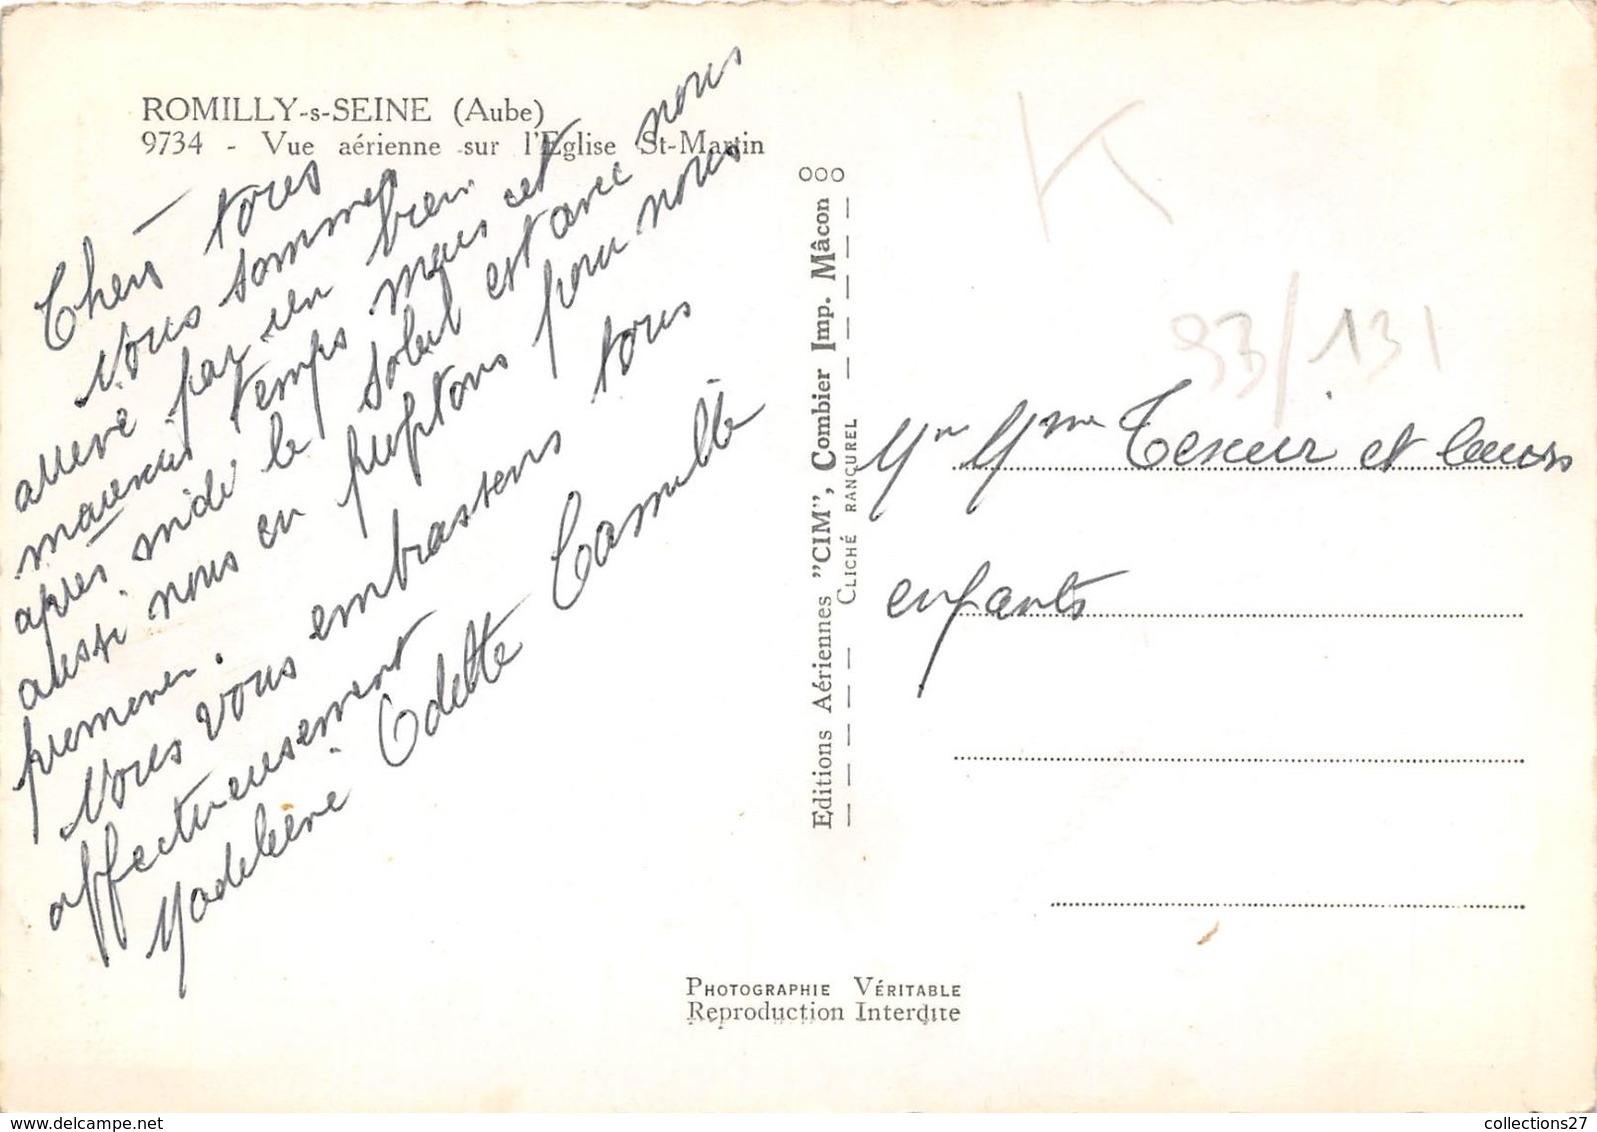 ROMILLY-s-SEINE (Aube)
9734 - Vue aérienne sur l'Eglise St-Martin
Chers tous
Nous sommes
arrivé par un bien
mauvais temps mais cet
après midi le soleil est avec nous
aussi nous en profitons pour nous
promener.
Nous vous embrassons tous
affectueusement
Madeleine Odette Camille
Editions Aériennes "CIM", Combier Imp. Mâcon
CLICHÉ RANCUREL
K
93/131
Mr Mme Texier et leurs
enfants
PHOTOGRAPHIE VÉRITABLE
Reproduction Interdite
collections27